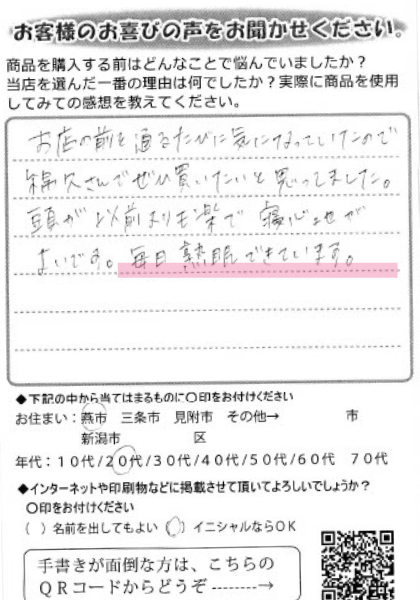 お客様のお喜びの声をお聞かせください。
商品を購入する前はどんなことで悩んでいましたか？
当店を選んだ一番の理由は何でしたか？実際に商品を使用
してみての感想を教えてください。
お店の前を通るたびに気になっていたので
綿久さんでぜひ買いたいと思ってました。
頭が以前よりも楽で 寝心地が
よいです。毎日熟眠できています。
◆下記の中から当てはまるものに〇印をお付けください
お住まい：燕市 三条市 見附市 その他→ 市
新潟市 区
年代：１０代/２０代/３０代/４０代/５０代/６０代 ７０代
◆インターネットや印刷物などに掲載させて頂いてよろしいでしょうか？
〇印をお付けください
（ ）名前を出してもよい（〇）イニシャルならＯＫ
手書きが面倒な方は、こちらの
ＱＲコードからどうぞ--------→